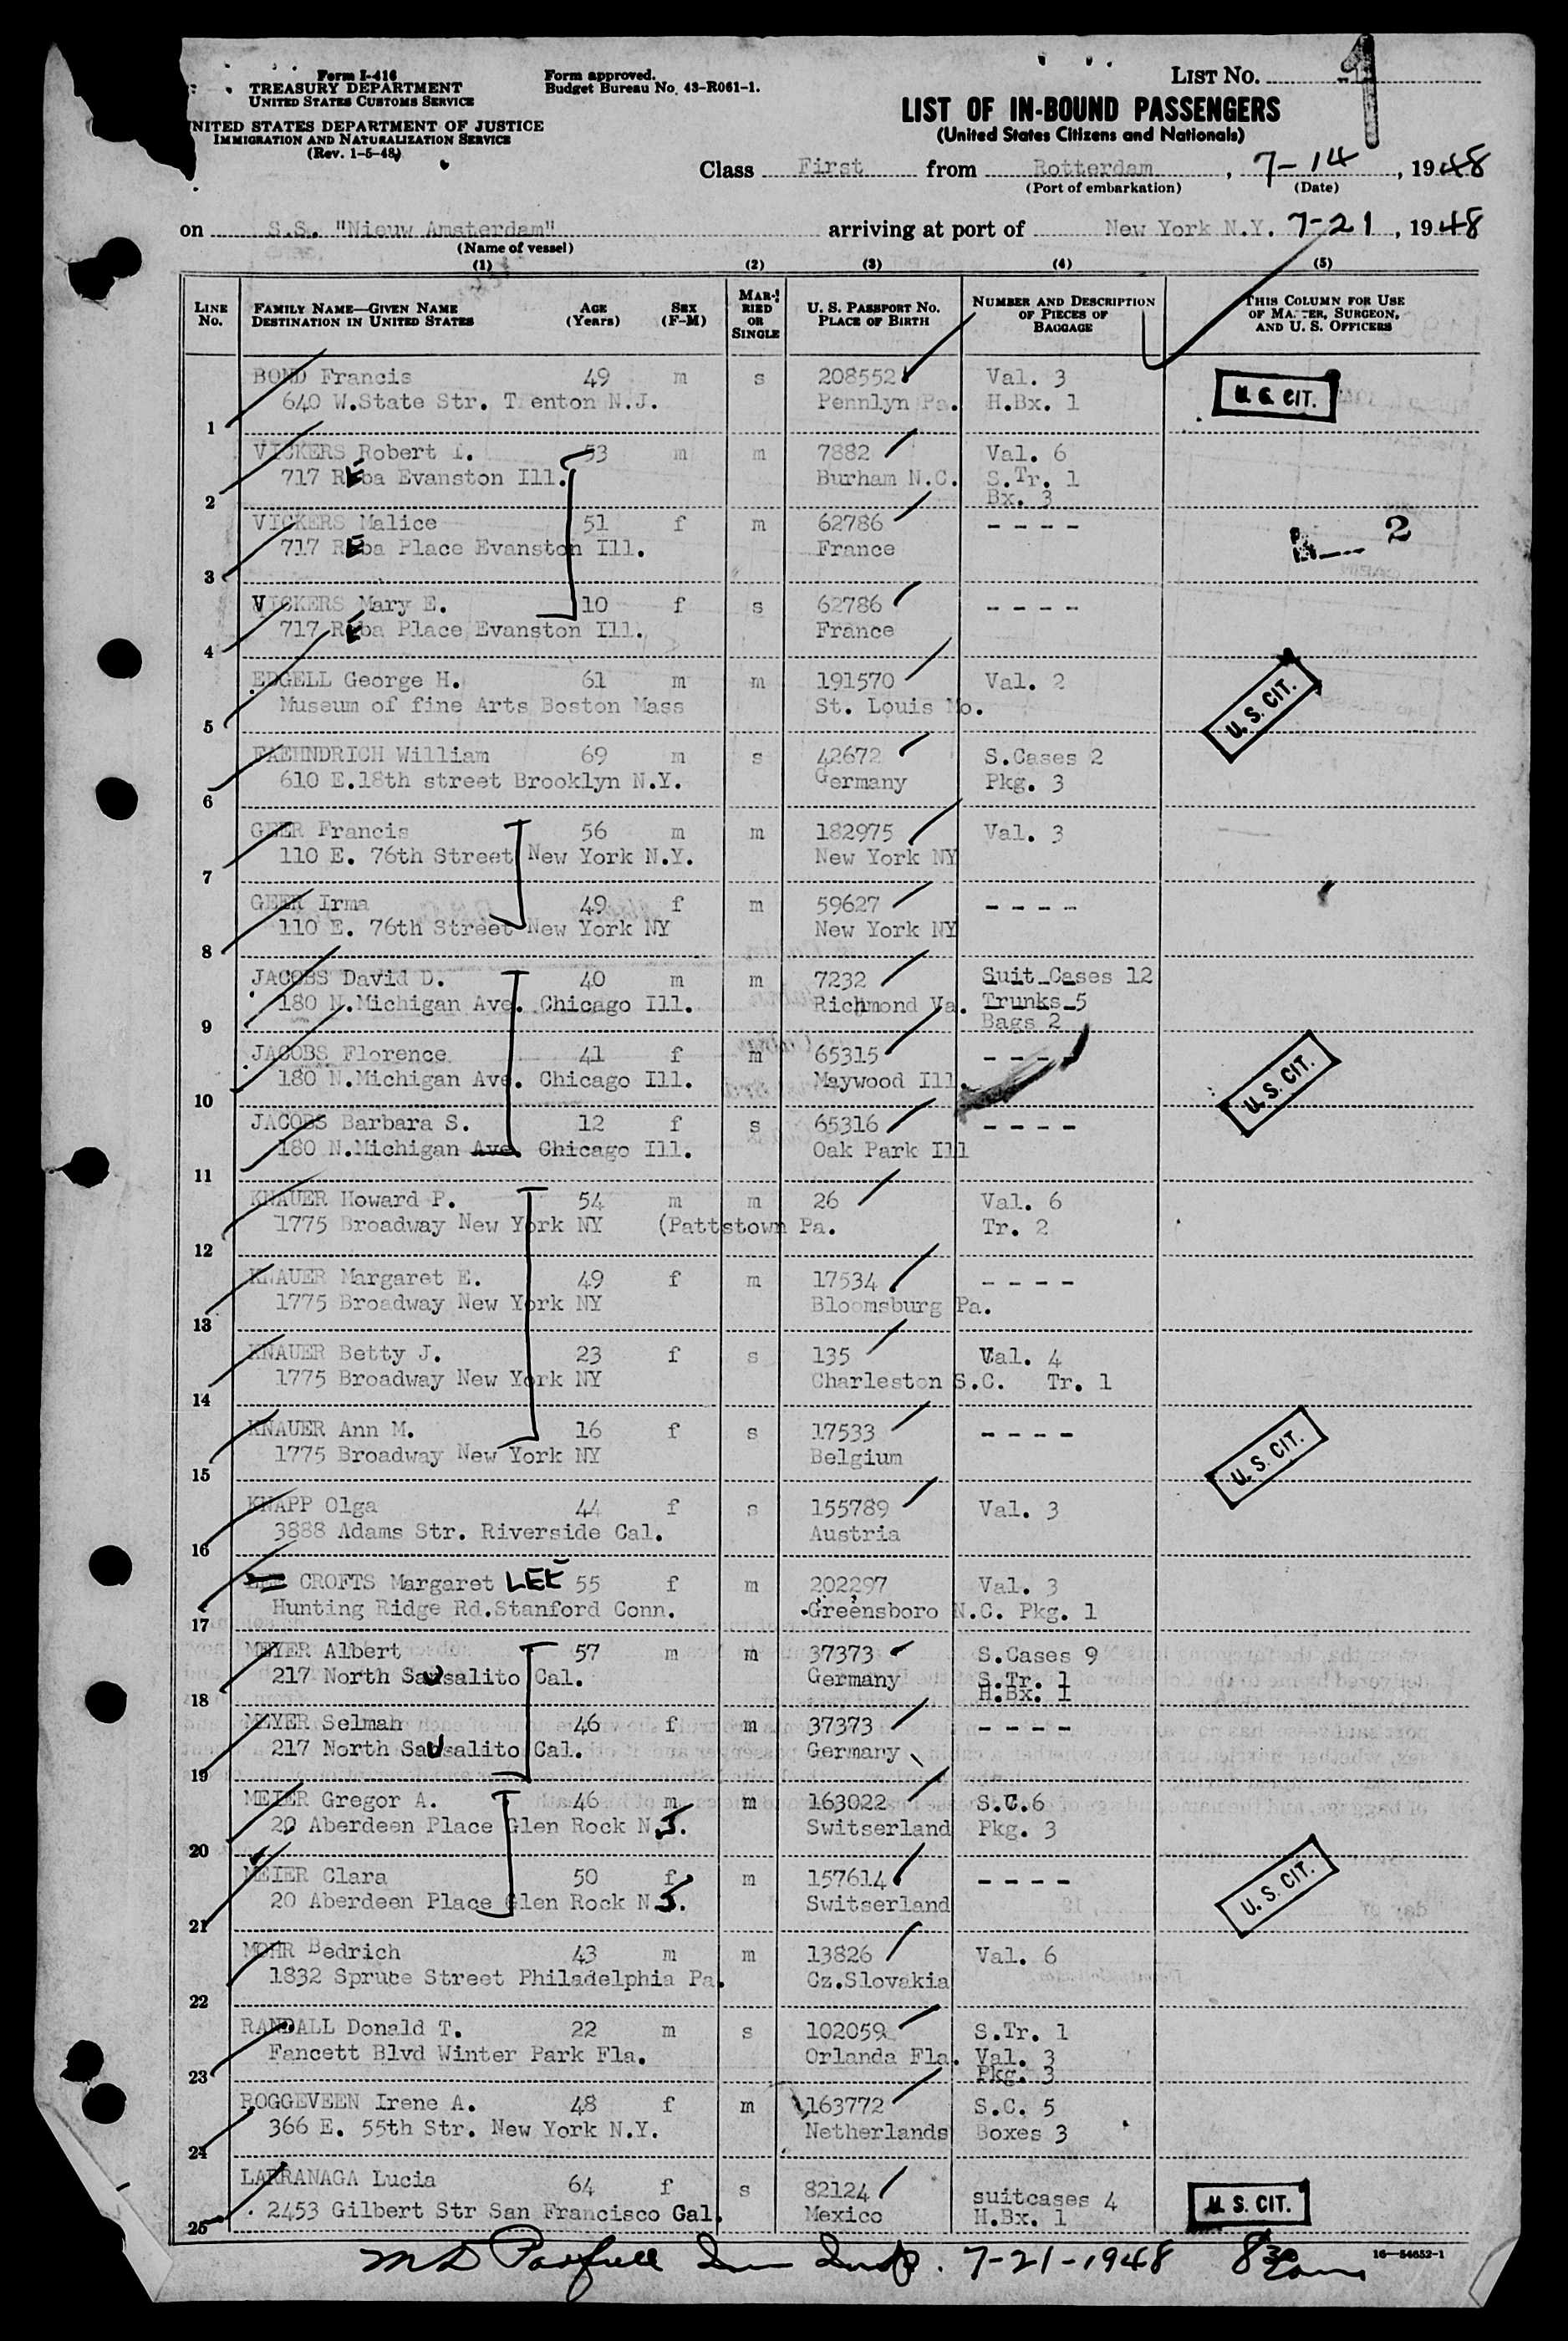 Form I-416
TREASURY DEPARTMENT
UNITED STATES CUSTOMS SERVICE
UNITED STATES DEPARTMENT OF JUSTICE
IMMIGRATION AND NATURALIZATION SERVICE
(Rev. 1-5-48)
Form approved.
Budget Bureau No. 43-R061-1.
LIST NO.
LIST OF IN-BOUND PASSENGERS
(United States Citizens and Nationals)
Class First from Rotterdam, 7-14, 1948
(Port of embarkation) (Date)
on S.S. "Nieuw Amsterdam" arriving at port of New York N.Y. 7-21, 1948
(Name of vessel)
(1) (2) (3) (4) (5)
LINE No. FAMILY NAME—GIVEN NAME DESTINATION IN UNITED STATES AGE (Years) SEX (F-M) MARRIED OR SINGLE U. S. PASSPORT NO. PLACE OF BIRTH NUMBER AND DESCRIPTION OF PIECES OF BAGGAGE THIS COLUMN FOR USE OF MASTER, SURGEON, AND U. S. OFFICERS
BOND Francis 49 m s 208552 Val. 3 U.S. CIT.
1 640 W.State Str. T enton N.J. Pennlyn Pa. H.Bx. 1
VICKERS Robert 53 m m 7882 Val. 6
2 717 REba Evanston Ill. Burham N.C. S.Tr. 1
Bx. 3
VICKERS Malice 51 f m 62786 ---- 2
3 717 REba Place Evanston Ill. France
VICKERS Mary E. 10 f s 62786 ----
4 717 REba Place Evanston Ill. France
EDGELL George H. 61 m m 191570 Val. 2 U.S. CIT.
5 Museum of fine Arts Boston Mass St. Louis Mo.
FAEHNDRICH William 69 m s 42672 S.Cases 2
6 610 E.18th street Brooklyn N.Y. Germany Pkg. 3
GEER Francis 56 m m 182975 Val. 3
7 110 E. 76th Street New York N.Y. New York NY
GEER Irma 49 f m 59627 ----
8 110 E. 76th Street New York NY New York NY
JACOBS David D. 40 m m 7232 Suit Cases 12
9 180 N.Michigan Ave. Chicago Ill. Richmond Va. Trunks 5
Bags 2
JACOBS Florence 41 f m 65315 ---- U.S. CIT.
10 180 N.Michigan Ave. Chicago Ill. Maywood Ill.
JACOBS Barbara S. 12 f s 65316 ----
11 180 N.Michigan Ave Chicago Ill. Oak Park Ill
KNAUER Howard P. 54 m m 26 Val. 6
12 1775 Broadway New York NY (Pattstown Pa. Tr. 2
KNAUER Margaret E. 49 f m 17534 ----
13 1775 Broadway New York NY Bloomsburg Pa.
KNAUER Betty J. 23 f s 135 Val. 4
14 1775 Broadway New York NY Charleston S.C. Tr. 1
KNAUER Ann M. 16 f s 17533 ---- U.S. CIT.
15 1775 Broadway New York NY Belgium
KNAPP Olga 44 f s 155789 Val. 3
16 3888 Adams Str. Riverside Cal. Austria
CROFTS Margaret LEE 55 f m 202297 Val. 3
17 Hunting Ridge Rd.Stanford Conn. Greensboro N.C. Pkg. 1
MEYER Albert 57 m m 37373 S.Cases 9
18 217 North Sausalito Cal. Germany S.Tr. 1
H.Bx. 1
MEYER Selmah 46 f m 37373 ----
19 217 North Sausalito Cal. Germany
MEIER Gregor A. 46 m m 163022 S.C.6
20 20 Aberdeen Place Glen Rock N.J. Switserland Pkg. 3
MEIER Clara 50 f m 157614 ---- U.S. CIT.
21 20 Aberdeen Place Glen Rock N.J. Switserland
MOHR Bedrich 43 m m 13826 Val. 6
22 1832 Spruce Street Philadelphia Pa. Cz.Slovakia
RANDALL Donald T. 22 m s 102059 S.Tr. 1
23 Fancett Blvd Winter Park Fla. Orlanda Fla. Val. 3
Pkg. 3
ROGGEVEEN Irene A. 48 f m 163772 S.C. 5
24 366 E. 55th Str. New York N.Y. Netherlands Boxes 3
LARRANAGA Lucia 64 f s 82124 suitcases 4 U.S. CIT.
25 2453 Gilbert Str San Francisco Gal. Mexico H.Bx. 1
Insp. 7-21-1948 8 30
16—54652-1